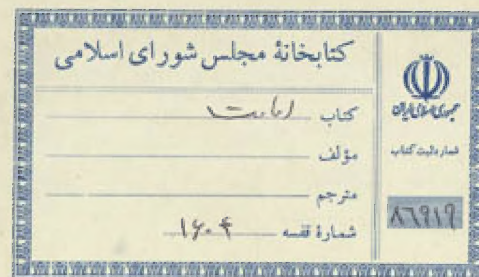 کتابخانهٔ مجلس شورای اسلامی
کتاب امامت
مؤلف
مترجم
شمارهٔ قفسه ۱۶۰۴
جمهوری اسلامی ایران
شماره ثبت کتاب
۸۶۹۱۹